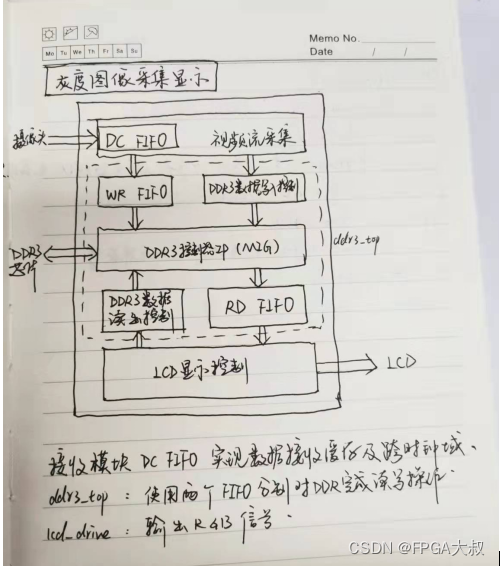 Memo No.
Mo Tu We Th Fr Sa Su
Date / /
灰度图像采集显示
摄像头
DC FIFO
视频流采集
WR FIFO
DDR3数据写入控制
DDR3芯片
DDR3控制器IP(MIG)
ddr3_top
DDR3数据
读出控制
RD FIFO
LCD显示控制
LCD
接收模块 DC FIFO 实现数据接收缓存及跨时钟域.
ddr3_top : 使用两个FIFO分别对DDR完成读写操作.
lcd_drive : 输出RGB信号.
CSDN @FPGA大叔